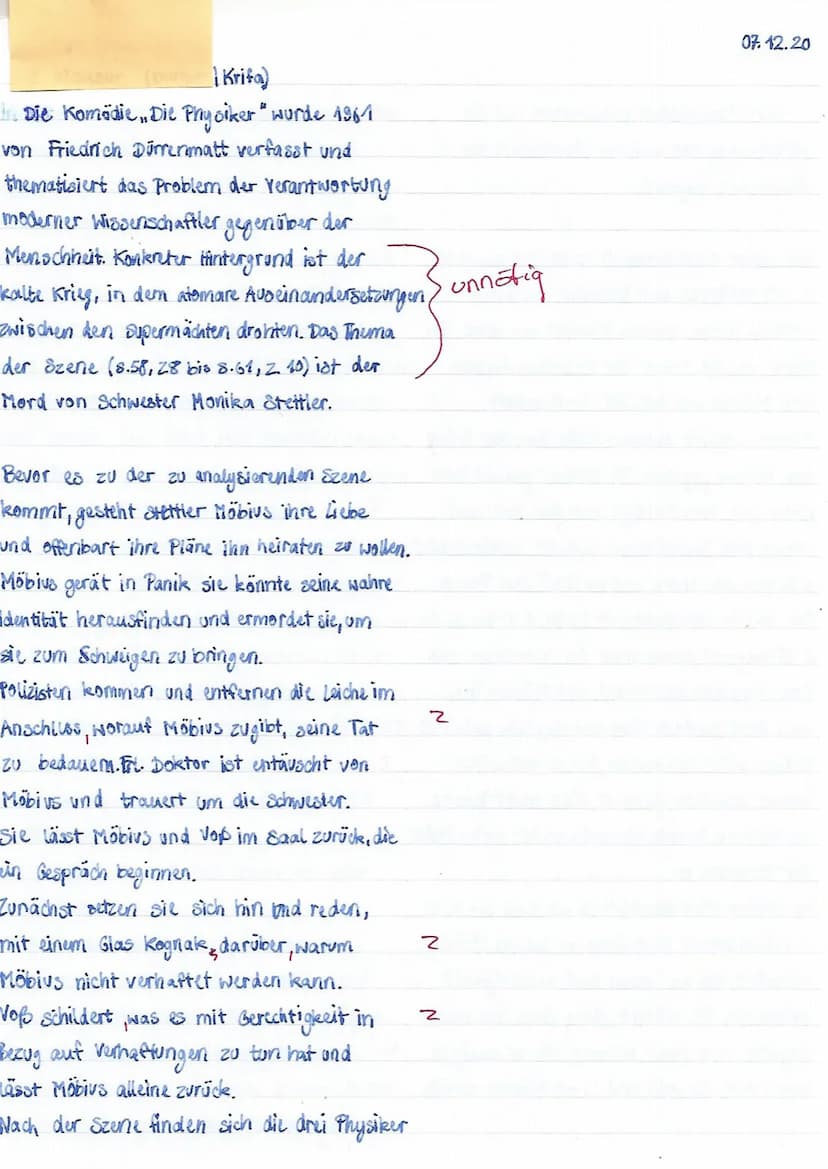 07.12.20
Krifa)
Die Komödie „Die Physiker" wurde 1961
von Friedrich Dürrenmatt verfasst und
thematisiert das Problem der Verantwortung
moderner Wissenschaftler gegenüber der
Menschheit. Konkreter Hintergrund ist der
kalte Krieg, in dem atomare Auseinandersetzungen
unnötig
zwischen den Supermächten drohten. Das Thema
der Szene (S.58, Z8 bis S.61, Z 10) ist der
Mord von Schwester Monika Stettler.
Bevor es zu der zu analysierenden Szene
kommt, gesteht Stettler Möbius ihre Liebe
und offenbart ihre Pläne ihn heiraten zu wollen.
Möbius gerät in Panik sie könnte seine wahre
Identität herausfinden und ermordet sie, um
sie zum Schweigen zu bringen.
Polizisten kommen und entfernen die Leiche im
Anschluss, worauf Möbius zugibt, seine Tat Z
zu bedauern. Frl. Doktor ist entäuscht von
Möbius und trauert um die Schwester.
Sie lässt Möbius und Voß im Saal zurück, die
ein Gespräch beginnen.
Zunächst setzen sie sich hin und reden,
mit einem Glas Kognak, darüber, warum Z
Möbius nicht verhaftet werden kann.
Voß schildert, was es mit Gerechtigkeit in Z
Bezug auf Verhaftungen zu tun hat und
lässt Möbius alleine zurück.
Nach der Szene finden sich die drei Physiker